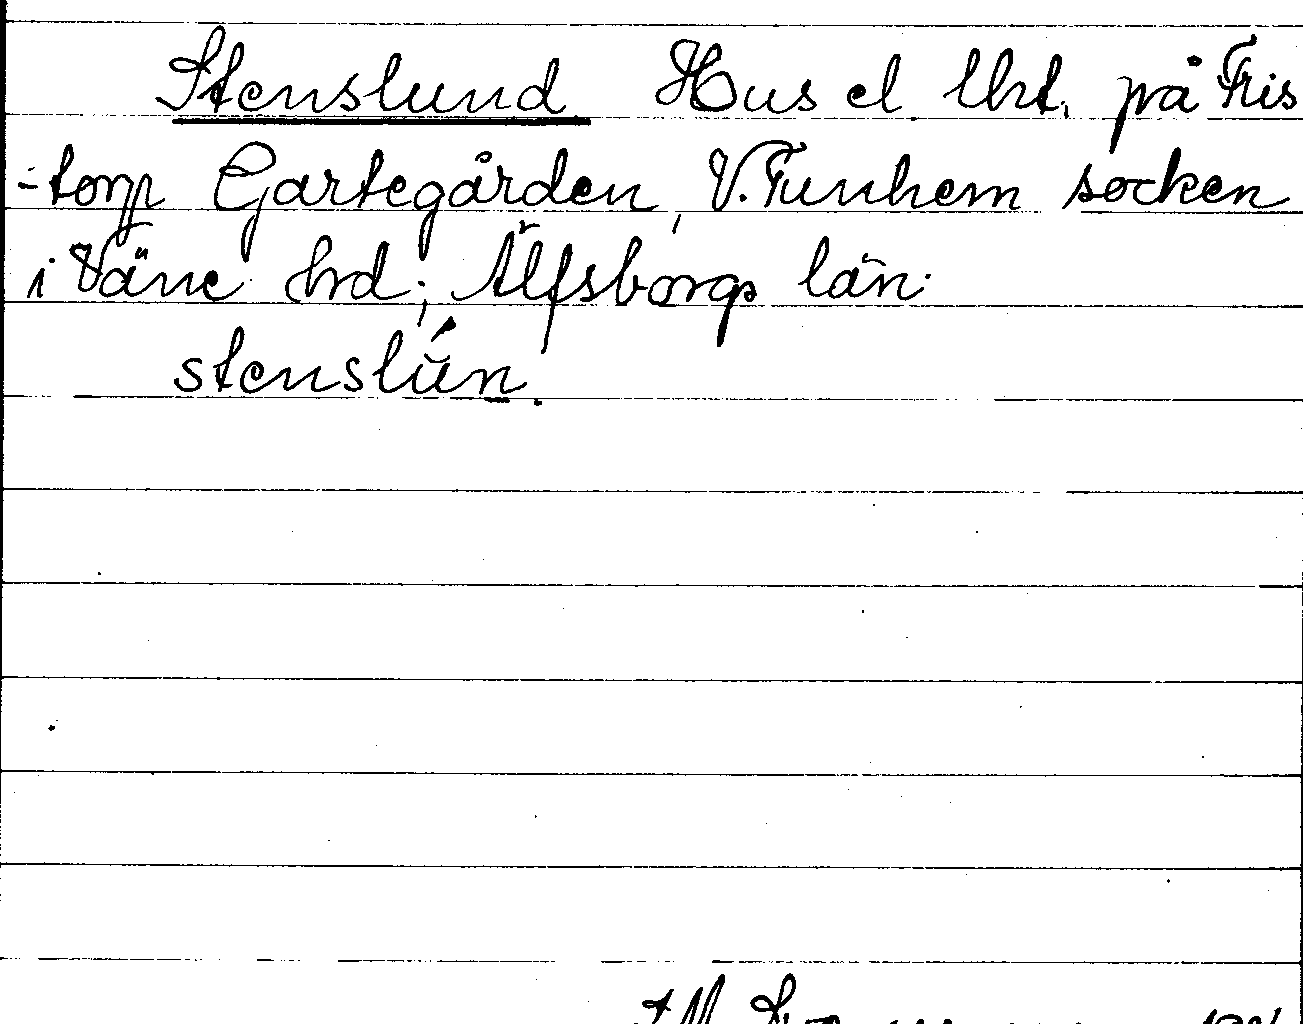 Stenslund Hus el. lht. på Fris
-torp Gartegården, V. Tunhem socken
i Väne hrd; Älfsborgs län.
stenslún.